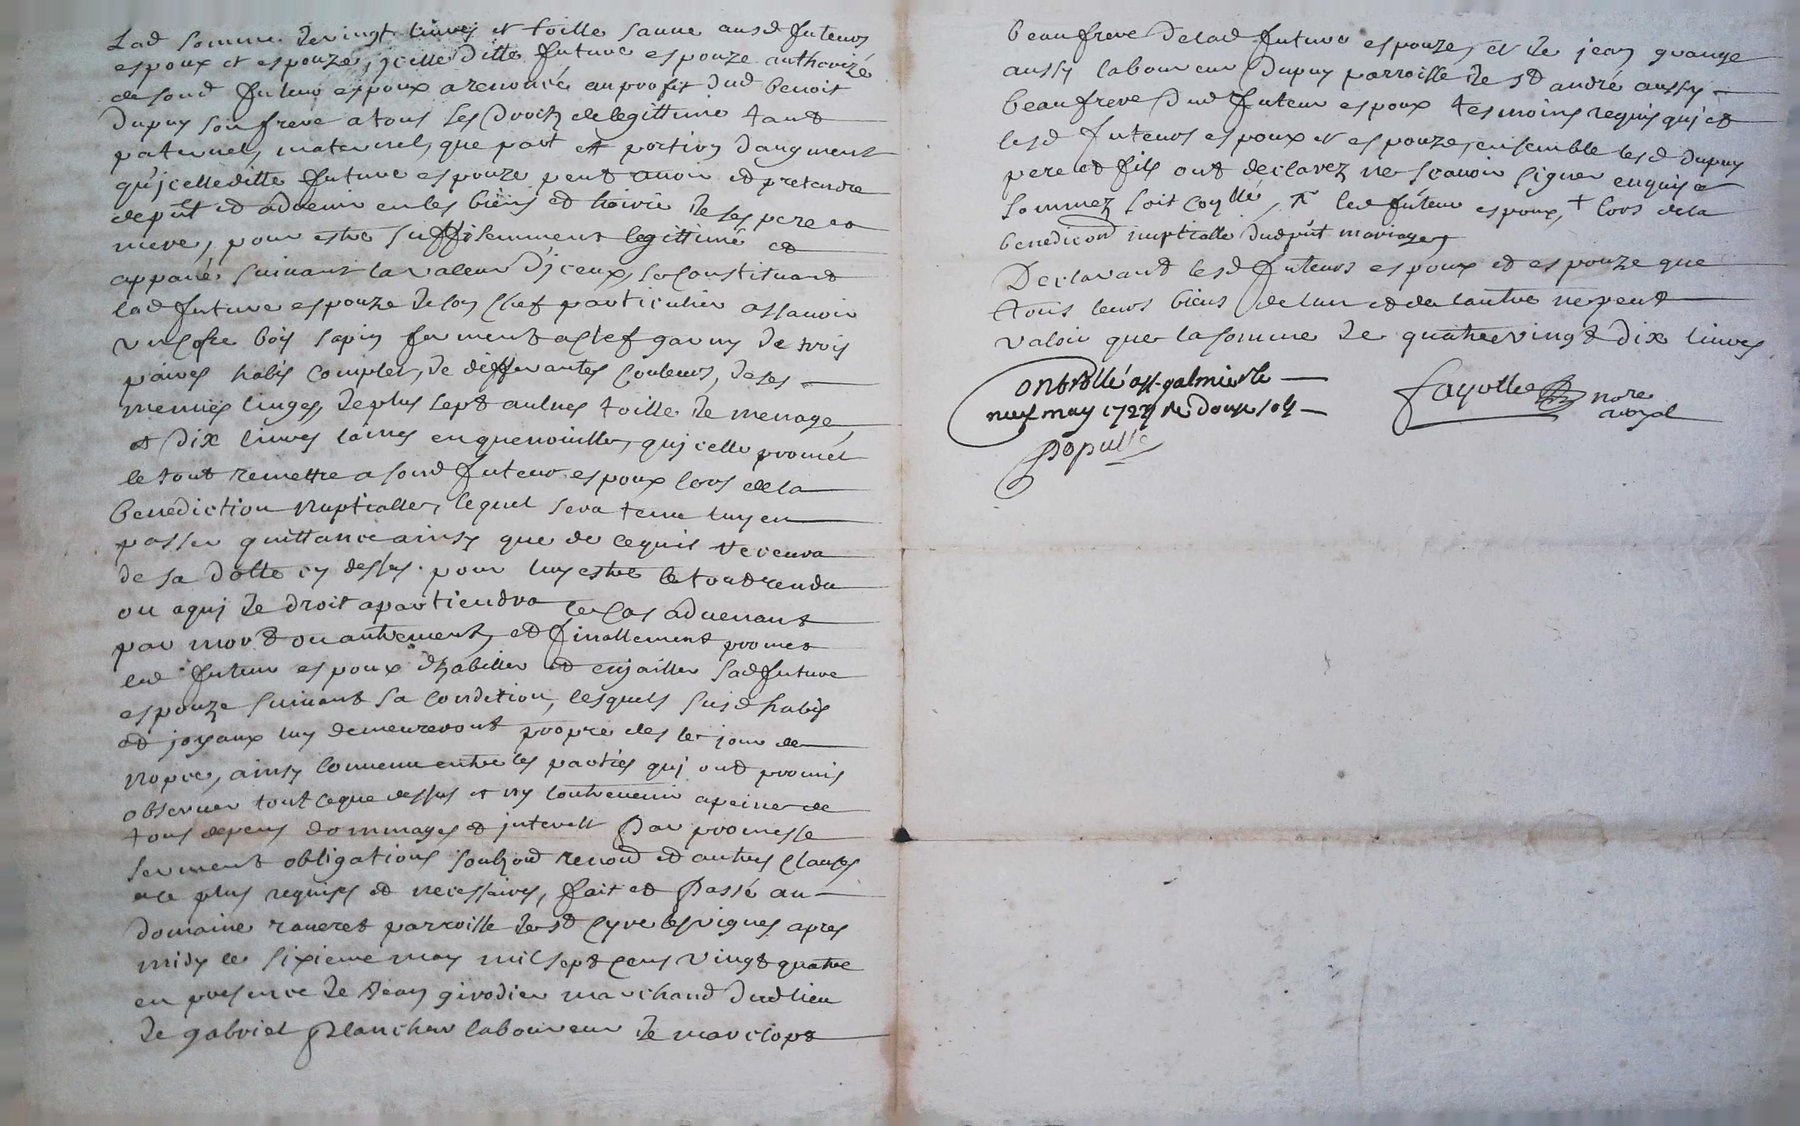 Lad somme de vingt livres et toille sauue ausd futeurs
espoux et espouze, jcelle ditte future espouze authorizé
de sond futeur espoux a renoncé au proofit dud benoit
dupuy son frere a tous les droitz de legittime tant
paternel, maternel, que part et portion daugment
qu'jcelleditte future espouze peut avoir et pretendre
de pñt et aduenir en les biens et hoirie de ses pere et
mere, pour estre suffisemment legittimé et
appané suiuant la valeur d'jceux, se constituant
lad future espouze de son chef particulier assauoir
un cofre bois sapin fermant a clef garny de trois
paires habis complet, de differantes couleurs, de ses
menues linges, de plus sept aulnes toille de menage,
et dix livres laines en quenouille, qu'jcelle promet
le tout remettre a sond futeur espoux lors de la
benediction nuptialle, lequel sera tenu luy en
passer quittance ainsy que de ce quil receura
de sa dotte cy dessus pour luy estre le tout rendu
ou a quj de droit apartiendra le cas aduenant
par mort ou autrement, et finallement promet
led futeur espoux d'habiller et enjailler sad future
espouze suiuant sa condition, lesquels susd habis
et joyaux luy demeureront propre des le jour de
nopce, ainsy conuenu entre les parties quj ont promis
obseruer tout ce que dessus et ny contreuenir a peine de
tous depens dommages et jnterest Par promesse
serment obligations soubzond renond et autres clauses
a ce plus requises et necessaires, fait et Passé au
domaine raueret parroisse de st Cyre les vignes apres
midy le sixieme may mil sept cens vingt quatre
en presence de Jean girodier marchand dud lieu
de gabriel Plancher laboureur de marclopt
beaufrere de lad future espouze, et de jean grange
aussy laboureur dupuy parroisse de st andré aussy
beaufrere dud futeur espoux tesmoins requis quj et
lesd futeurs espoux et espouze, ensemble lesd dupuy
pere et fils ont declarez ne scauoir signer enquis et
sommez soit coñllé, led futeur espoux, + lors de la
benediond nuptialle dud pñt mariage
Declarant lesd futeurs espoux et espouze que
tous leurs biens de lun et de lautre ne peut
valoir que la somme de quatre vingt dix livres
Controllé a st galmier le
neuf may 1724 re douze sols
Fayolle nore
royal